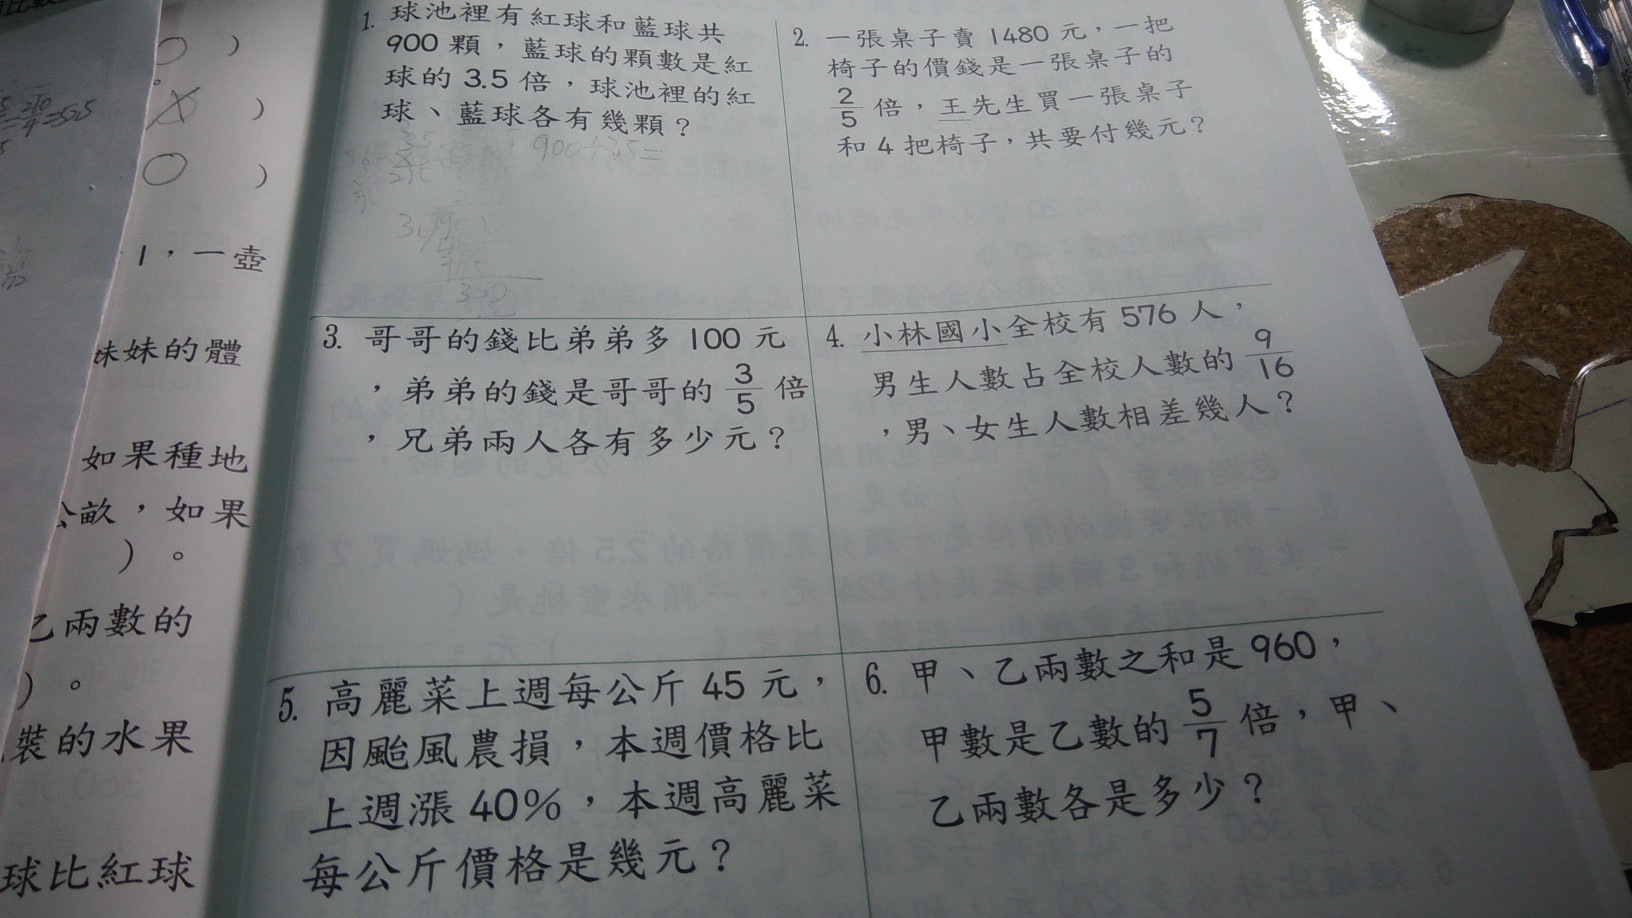 1. 球池裡有紅球和藍球共
900 顆，藍球的顆數是紅
球的 3.5 倍，球池裡的紅
球、藍球各有幾顆？
900÷3.5=
2. 一張桌子賣 1480 元，一把
椅子的價錢是一張桌子的
2/5 倍，王先生買一張桌子
和 4 把椅子，共要付幾元？
3. 哥哥的錢比弟弟多 100 元
，弟弟的錢是哥哥的 3/5 倍
，兄弟兩人各有多少元？
4. 小林國小全校有 576 人，
男生人數占全校人數的 9/16
，男、女生人數相差幾人？
5. 高麗菜上週每公斤 45 元，
因颱風農損，本週價格比
上週漲 40%，本週高麗菜
每公斤價格是幾元？
6. 甲、乙兩數之和是 960，
甲數是乙數的 5/7 倍，甲、
乙兩數各是多少？
）
）
）
1，一壺
妹妹的體
如果種地
公畝，如果
）。
乙兩數的
）。
裝的水果
球比紅球